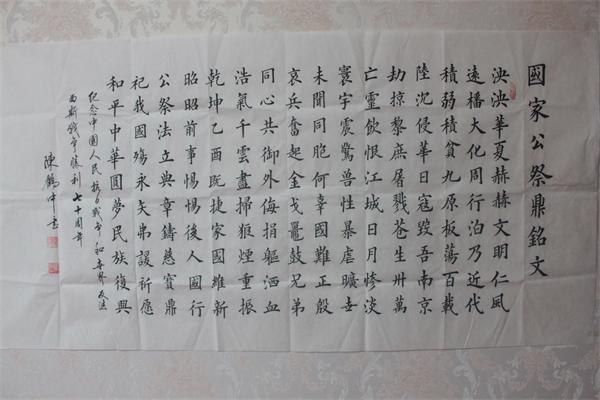 國家公祭鼎銘文
泱泱華夏赫赫文明仁風
遠播大化周行泊乃近代
積弱積貧九原板蕩百載
陸沉侵華日寇毀吾南京
劫掠黎庶屠戮蒼生卅萬
亡靈飲恨江城日月慘淡
寰宇震驚獸性暴虐曠世
未聞同胞何辜國難正殷
哀兵奮起金戈鼉鼓兄弟
同心共御外侮捐軀洒血
浩氣干雲盡掃狼煙重振
乾坤乙酉既捷家國維新
昭昭前事惕惕後人國行
公祭法立典章鑄慈寶鼎
祀我國殤永矢弗諼祈愿
和平中華圓夢民族復興
紀念中國人民抗日戰爭和世界反法
西斯戰爭勝利七十周年
陳鶴 書